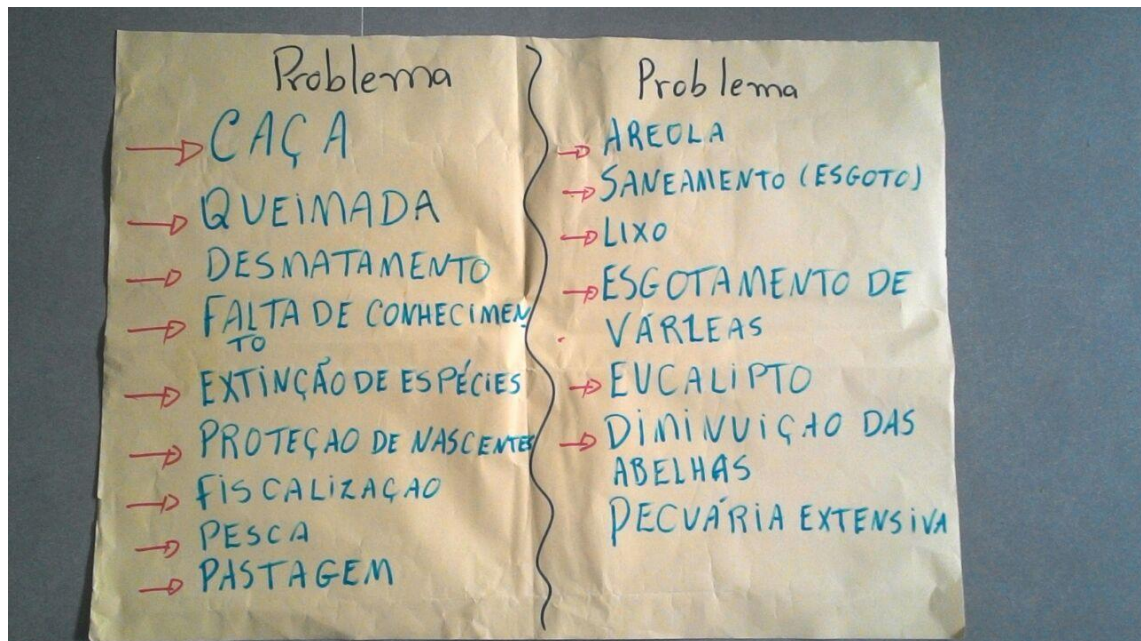 Problema
CAÇA
QUEIMADA
DESMATAMENTO
FALTA DE CONHECIMEN
TO
EXTINÇÃO DE ESPÉCIES
PROTEÇAO DE NASCENTES
FISCALIZAÇAO
PESCA
PASTAGEM
Problema
AREOLA
SANEAMENTO (ESGOTO)
LIXO
ESGOTAMENTO DE
VÁRZEAS
EUCALIPTO
DIMINUIÇÃO DAS
ABELHAS
PECUÁRIA EXTENSIVA